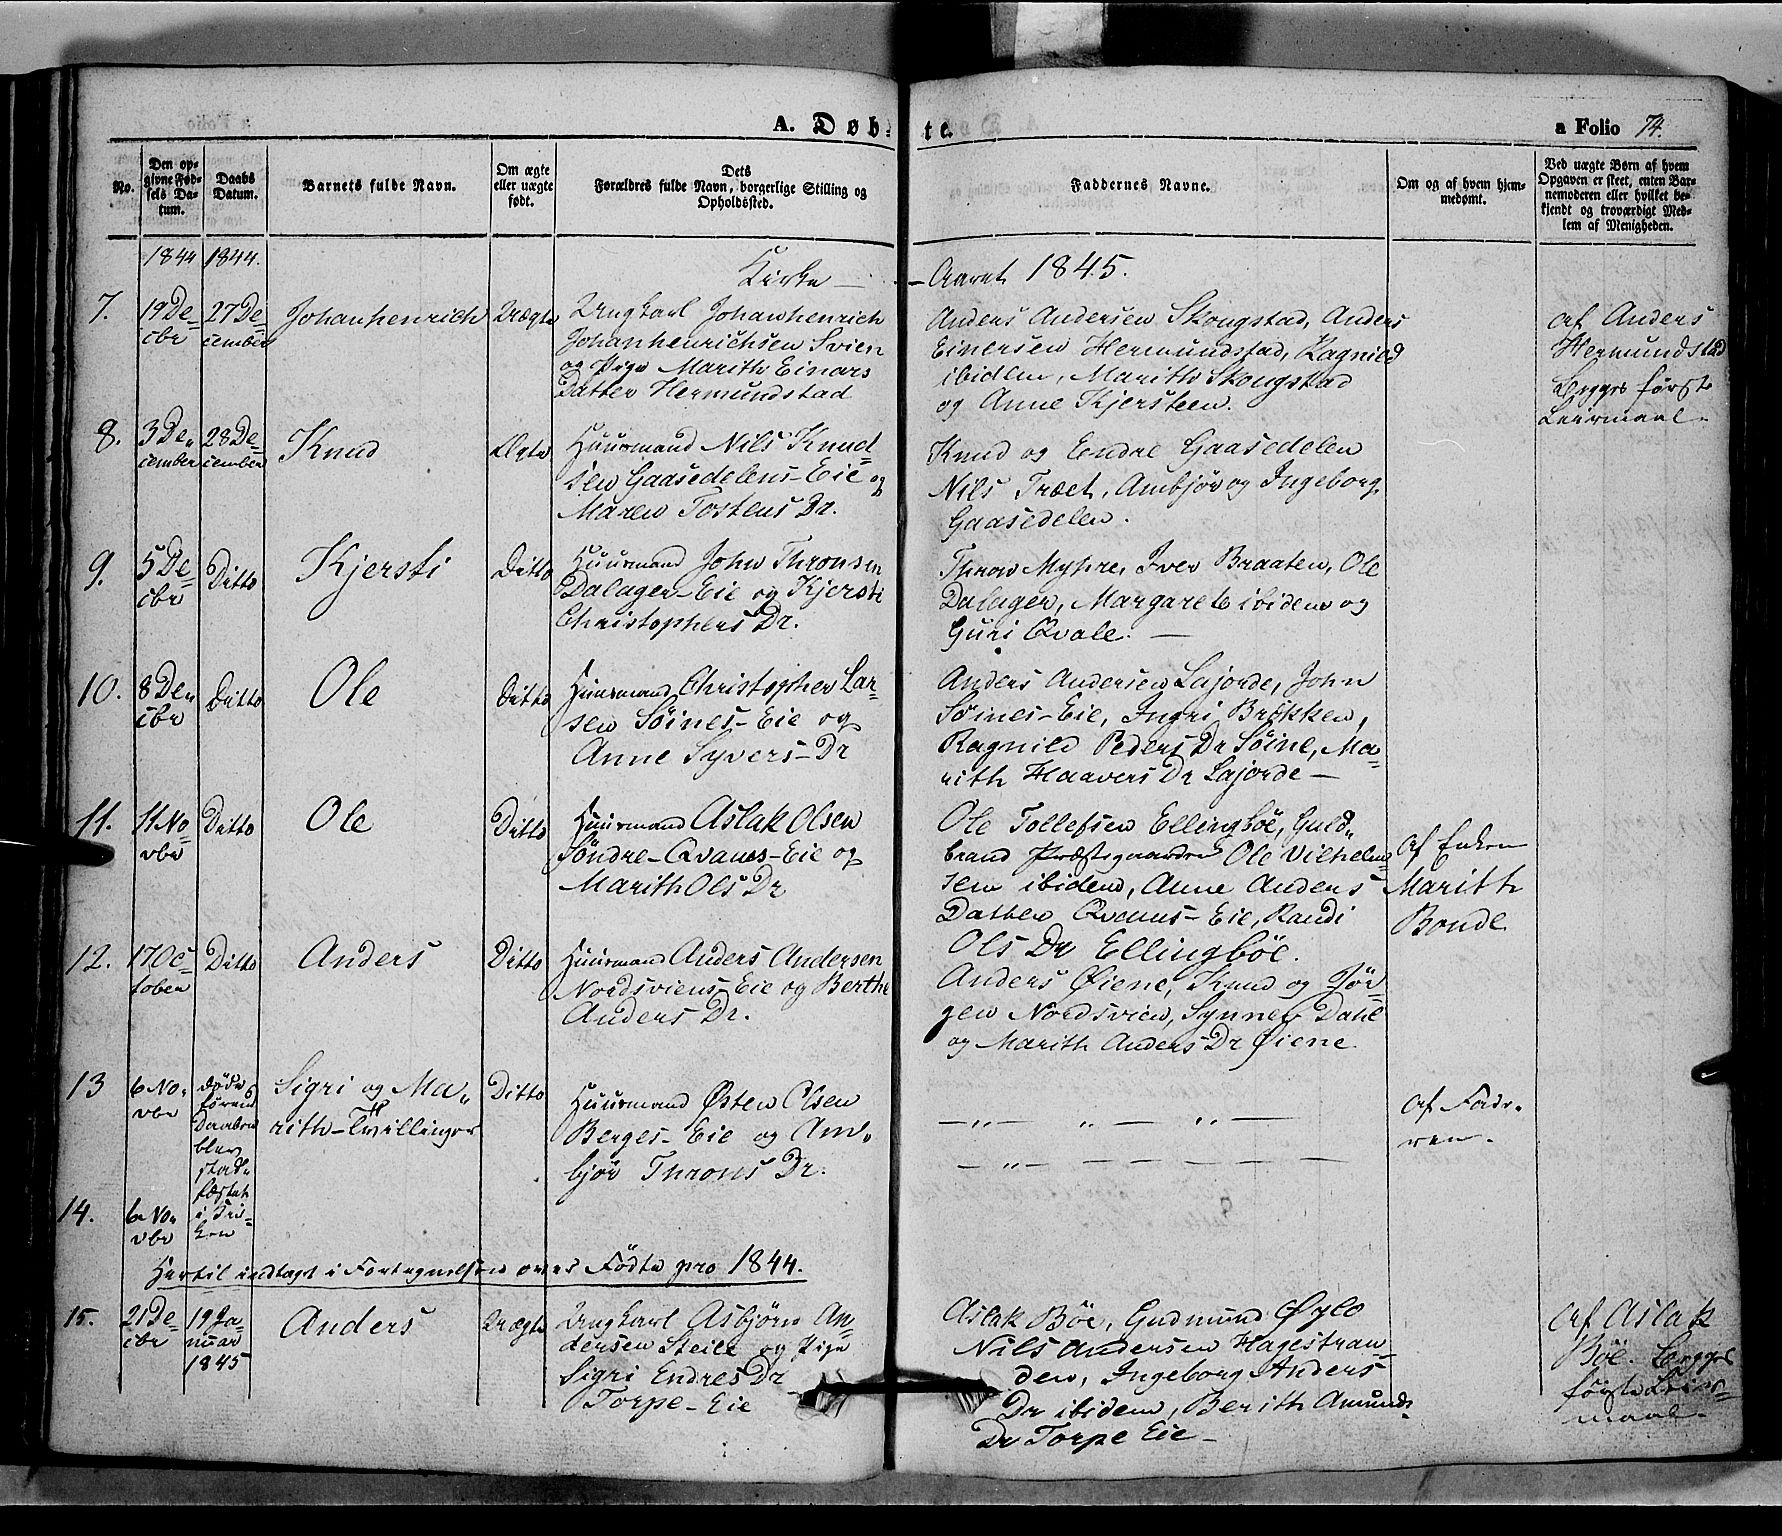 A. Døbte.
a Folio 74.
No.
Den op-
givne Fød-
sels Da-
tum.
Daabs
Datum.
Barnets fulde Navn.
Om ægte
eller uægte
født.
Dets
Forældres fulde Navn, borgerlige Stilling og
Opholdssted.
Faddernes Navne.
Om og af hvem hjem-
medøbt.
Ved uægte Børn af hvem
Opgaven er skeet, enten Bar-
nemoderen eller hvilket be-
kjendt og troværdigt Med-
lem af Menigheden.
1844 1844.
Kirke — Aaret 1845.
7.
19 De-
cbr
27 De-
cember
Johanhenrich
Uægte
Ungkarl Johanhenrich
Johanhenrichsen Svien
og Pige Marith Einars
Datter Hermundstad
Anders Andersen Skougstad, Anders
Einersen Hermundstad, Ragnild
ibidem, Marith Skougstad
og Anne Kjersteen.
af Anders
Hermundstad
Begges første
Leiermaal.
8.
3 De-
cember
28 De-
cember
Knud
Ægte
Huusmand Nils Knud-
sen Gaasedelens-Eie og
Maren Tostens Dr.
Knud og Endre Gaasedelen
Nils Træet, Ambjør og Ingeborg
Gaasedelen.
9.
5 De-
cbr
Ditto
Kjersti
Ditto
Huusmand John Thronsen
Dalager-Eie og Kjersti
Christophers Dr.
Thron Myhre, Iver Braaten, Ole
Dalager, Margaret ibidem og
Guri Qvale. —
10.
8 De-
cbr
Ditto
Ole
Ditto
Huusmand Christopher Lar-
sen Søines-Eie og
Anne Syvers-Dr
Anders Andersen Lajorde, John
Søines-Eie, Ingri Brækken,
Ragnild Peders Dr Søine, Ma-
rith Haavers Dr Lajorde —
11.
11 No-
vbr
Ditto
Ole
Ditto
Huusmand Aslak Olsen
Søndre-Qvams-Eie og
Marith Ols Dr
Ole Tollefsen Ellingbøe, Guld-
brand Præstegaarden Ole Vilhelm-
sen ibidem, Anne Anders
Datter Qvams-Eie, Randi
Ols Dr Ellingbøe.
af Enken
Marith
Bonde
12.
17 Oc-
tober
Ditto
Anders
Ditto
Huusmand Anders Andersen
Nordsviens Eie og Berthe
Anders Dr.
Anders Øiene, Knud og Jør-
gen Nordsvien, Synnev Dahl
og Marith Anders Dr Øiene
13
6 No-
vbr
døde
førend
Daaben
blev
stad-
fæstet
i Kir-
ken
Sigri og Ma-
rith - Tvillinger
Ditto
Huusmand Østen Olsen
Berges-Eie og Am-
bjør Throns Dr.
— „ — „ — „ —
— „ — — — — —
af Fade-
ren.
14.
6 No-
vbr
Hertil indtagt i Fortegnelsen over Fødte pro 1844.
15.
21 De-
cbr
19 Ja-
nuar
1845
Anders
Uægte
Ungkarl Asbjørn An-
dersen Steile og Pige
Sigri Endres Dr
Torpe-Eie
Aslak Bøe, Gudmund Øylo
Nils Andersen Hagestran-
den, Ingeborg Anders
Dr ibidem, Berith Amunds
Dr Torpe Eie —
af Aslak
Bøe. Begges
første Leier-
maal.